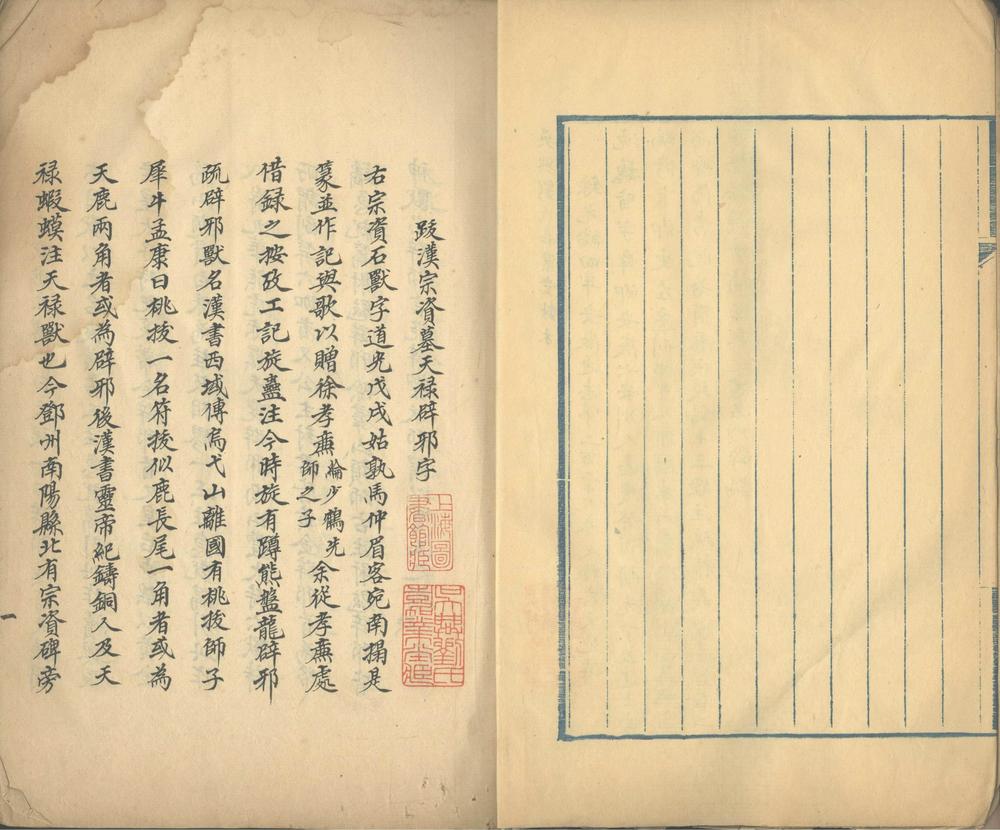 跋漢宗資墓天禄辟邪字
右宗資石獸字道光戊戌姑孰馬仲眉客宛南搨是
篆並作記與歌以贈徐孝廉綸少鶴先師之子余從孝廉處
借録之按攷工記旋蟲注今時旋有蹲熊盤龍辟邪
疏辟邪獸名漢書西域傳烏弋山離國有桃拔師子
犀牛孟康曰桃拔一名符拔似鹿長尾一角者或為
天鹿兩角者或為辟邪後漢書靈帝紀鑄銅人及天
禄蝦蟆注天禄獸也今鄧州南陽縣北有宗資碑旁
上海圖書館藏
吳興劉氏嘉業堂藏